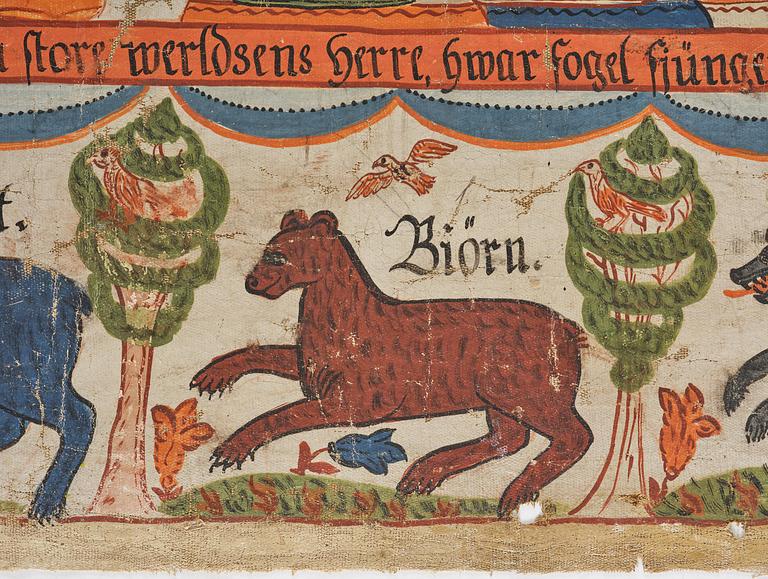 store werldsens Herre, hwar fogel sjünge
Biörn.